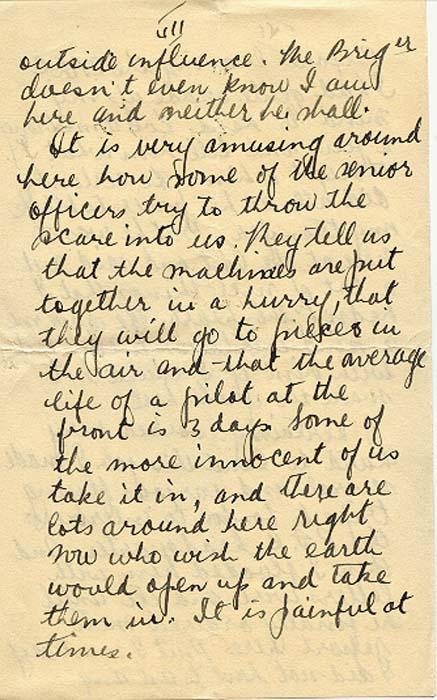 III
outside influence. The Brig er
doesn't even know I am
here and neither he shall.
It is very amusing around
here how some of the senior
officers try to throw the
scare into us. They tell us
that the machines are put
together in a hurry, that
they will go to pieces in
the air and that the average
life of a pilot at the
front is 3 days. Some of
the more innocent of us
take it in, and there are
lots around here right
now who wish the earth
would open up and take
them in. It is painful at
times.